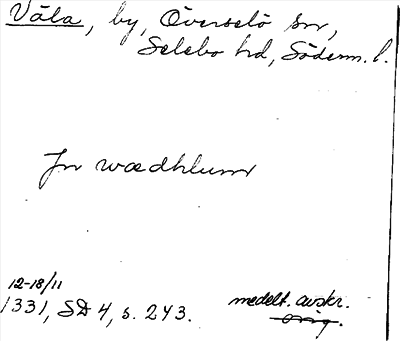 Våla, by, Överselö sn,
Selebo hd, Söderm. l.
Jn wædhlum
12-18/11
1331, SD 4, s. 243.
medelt. avskr.
orig.